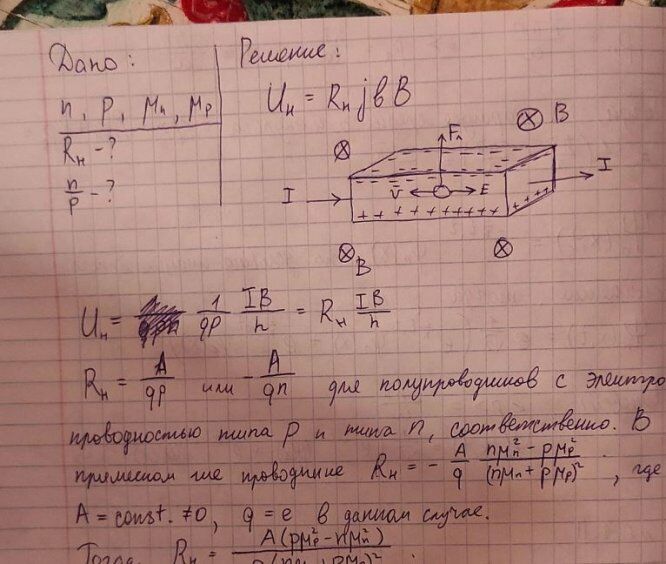 Дано: Решение:
n, p, μn, μp
Uн = Rн j b B
Rн - ?
n/p - ?
B
Fл
I V E I
B
Uн = 1/qp IB/h = Rн IB/h
Rн = A/qp или - A/qn для полупроводников с электро
проводностью типа p и типа n, соответственно. В
примесном же проводнике Rн = - A/q (nμn² - pμp²)/(nμn + pμp)², где
A = const. ≠ 0, q = e в данном случае.
Тогда Rн = A(pμp² - nμn²)